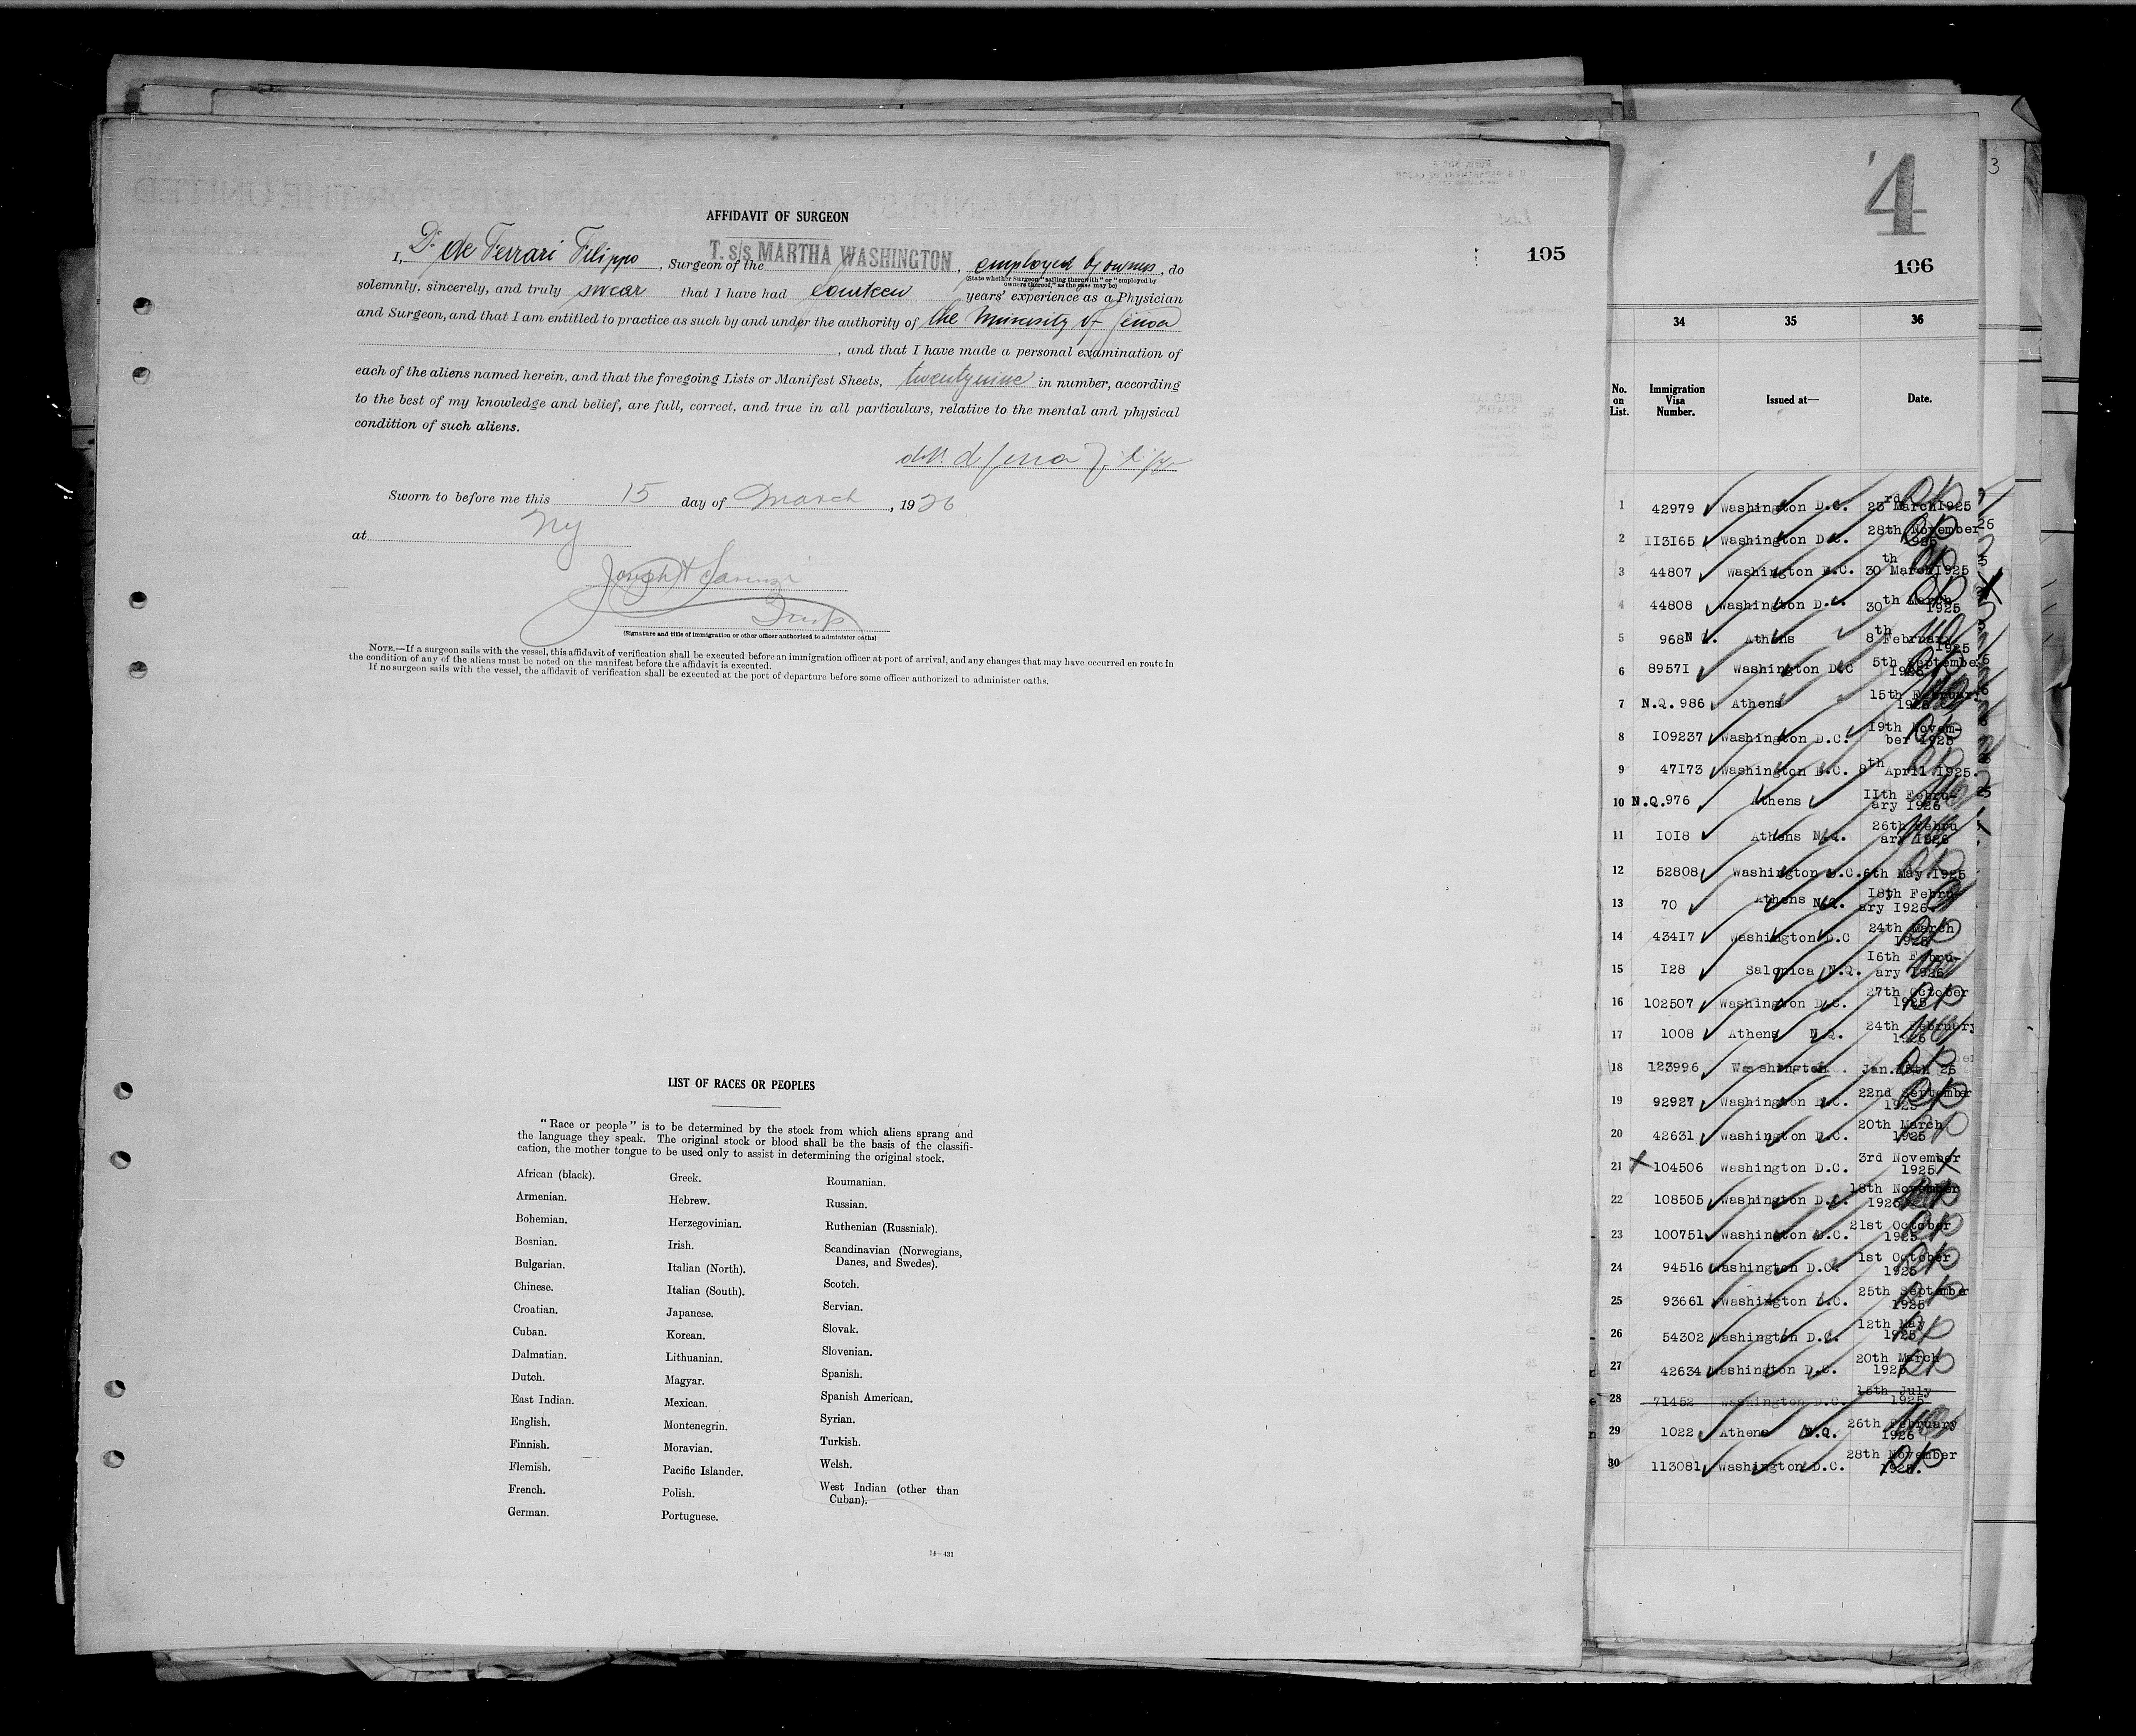 AFFIDAVIT OF SURGEON
I, Dr de Ferrari Filippo, Surgeon of the T. s/s MARTHA WASHINGTON, employed by owners, do
(State whether Surgeon "sailing therewith" or "employed by owners thereof," as the case may be)
solemnly, sincerely, and truly swear that I have had fourteen years' experience as a Physician
and Surgeon, and that I am entitled to practice as such by and under the authority of the University of Genoa
, and that I have made a personal examination of
each of the aliens named herein, and that the foregoing Lists or Manifest Sheets, twentynine in number, according
to the best of my knowledge and belief, are full, correct, and true in all particulars, relative to the mental and physical
condition of such aliens.
Sworn to before me this 15 day of March, 1926
at NY
(Signature and title of immigration or other officer authorized to administer oaths)
NOTE.—If a surgeon sails with the vessel, this affidavit of verification shall be executed before an immigration officer at port of arrival, and any changes that may have occurred en route in
the condition of any of the aliens must be noted on the manifest before the affidavit is executed.
If no surgeon sails with the vessel, the affidavit of verification shall be executed at the port of departure before some officer authorized to administer oaths.
105
LIST OF RACES OR PEOPLES
"Race or people" is to be determined by the stock from which aliens sprang and
the language they speak. The original stock or blood shall be the basis of the classifi-
cation, the mother tongue to be used only to assist in determining the original stock.
African (black).
Armenian.
Bohemian.
Bosnian.
Bulgarian.
Chinese.
Croatian.
Cuban.
Dalmatian.
Dutch.
East Indian.
English.
Finnish.
Flemish.
French.
German.
Greek.
Hebrew.
Herzegovinian.
Irish.
Italian (North).
Italian (South).
Japanese.
Korean.
Lithuanian.
Magyar.
Mexican.
Montenegrin.
Moravian.
Pacific Islander.
Polish.
Portuguese.
Roumanian.
Russian.
Ruthenian (Russniak).
Scandinavian (Norwegians,
Danes, and Swedes).
Scotch.
Servian.
Slovak.
Slovenian.
Spanish.
Spanish American.
Syrian.
Turkish.
Welsh.
West Indian (other than
Cuban).
14—431
4
3
106
34 35 36
No. on List. Immigration Visa Number. Issued at— Date.
1 42979 Washington D.C. 23rd March 1925
2 113165 Washington D.C. 28th November 1925
3 44807 Washington D.C. 30th March 1925
4 44808 Washington D.C. 30th March 1925
5 968 N Athens 8th February 1925
6 89571 Washington D.C 5th Septembe 1925
7 N.Q. 986 Athens 15th February 1926
8 109237 Washington D.C. 19th Novem- ber 1925
9 47173 Washington D.C. 8th April 1925.
10 N.Q. 976 Athens 11th Febru- ary 1926
11 1018 Athens N.Q. 26th Febru ary 1926
12 52808 Washington D.C. 6th May 1925
13 70 Athens N.Q. 18th Febru- ary 1926
14 43417 Washington D.C 24th March 1925
15 128 Salonica N.Q. 16th Febru- ary 1926
16 102507 Washington D.C. 27th October 1925
17 1008 Athens N.Q. 24th February 1926
18 123996 Washington. Jan. 26
19 92927 Washington D.C. 22nd September 1925
20 42631 Washington D.C. 20th March 1925
21 X 104506 Washington D.C. 3rd November 1925 X
22 108505 Washington D.C. 18th November 1925
23 100751 Washington D.C. 21st October 1925
24 94516 Washington D.C. 1st October 1925
25 93661 Washington D.C. 25th Septembe 1925
26 54302 Washington D.C. 12th May 1925
27 42634 Washington D.C. 20th March 1925
28 71452 Washington D.C. 15th July 1925
29 1022 Athens N.Q. 26th February 1926
30 113081 Washington D.C. 28th November 1925.